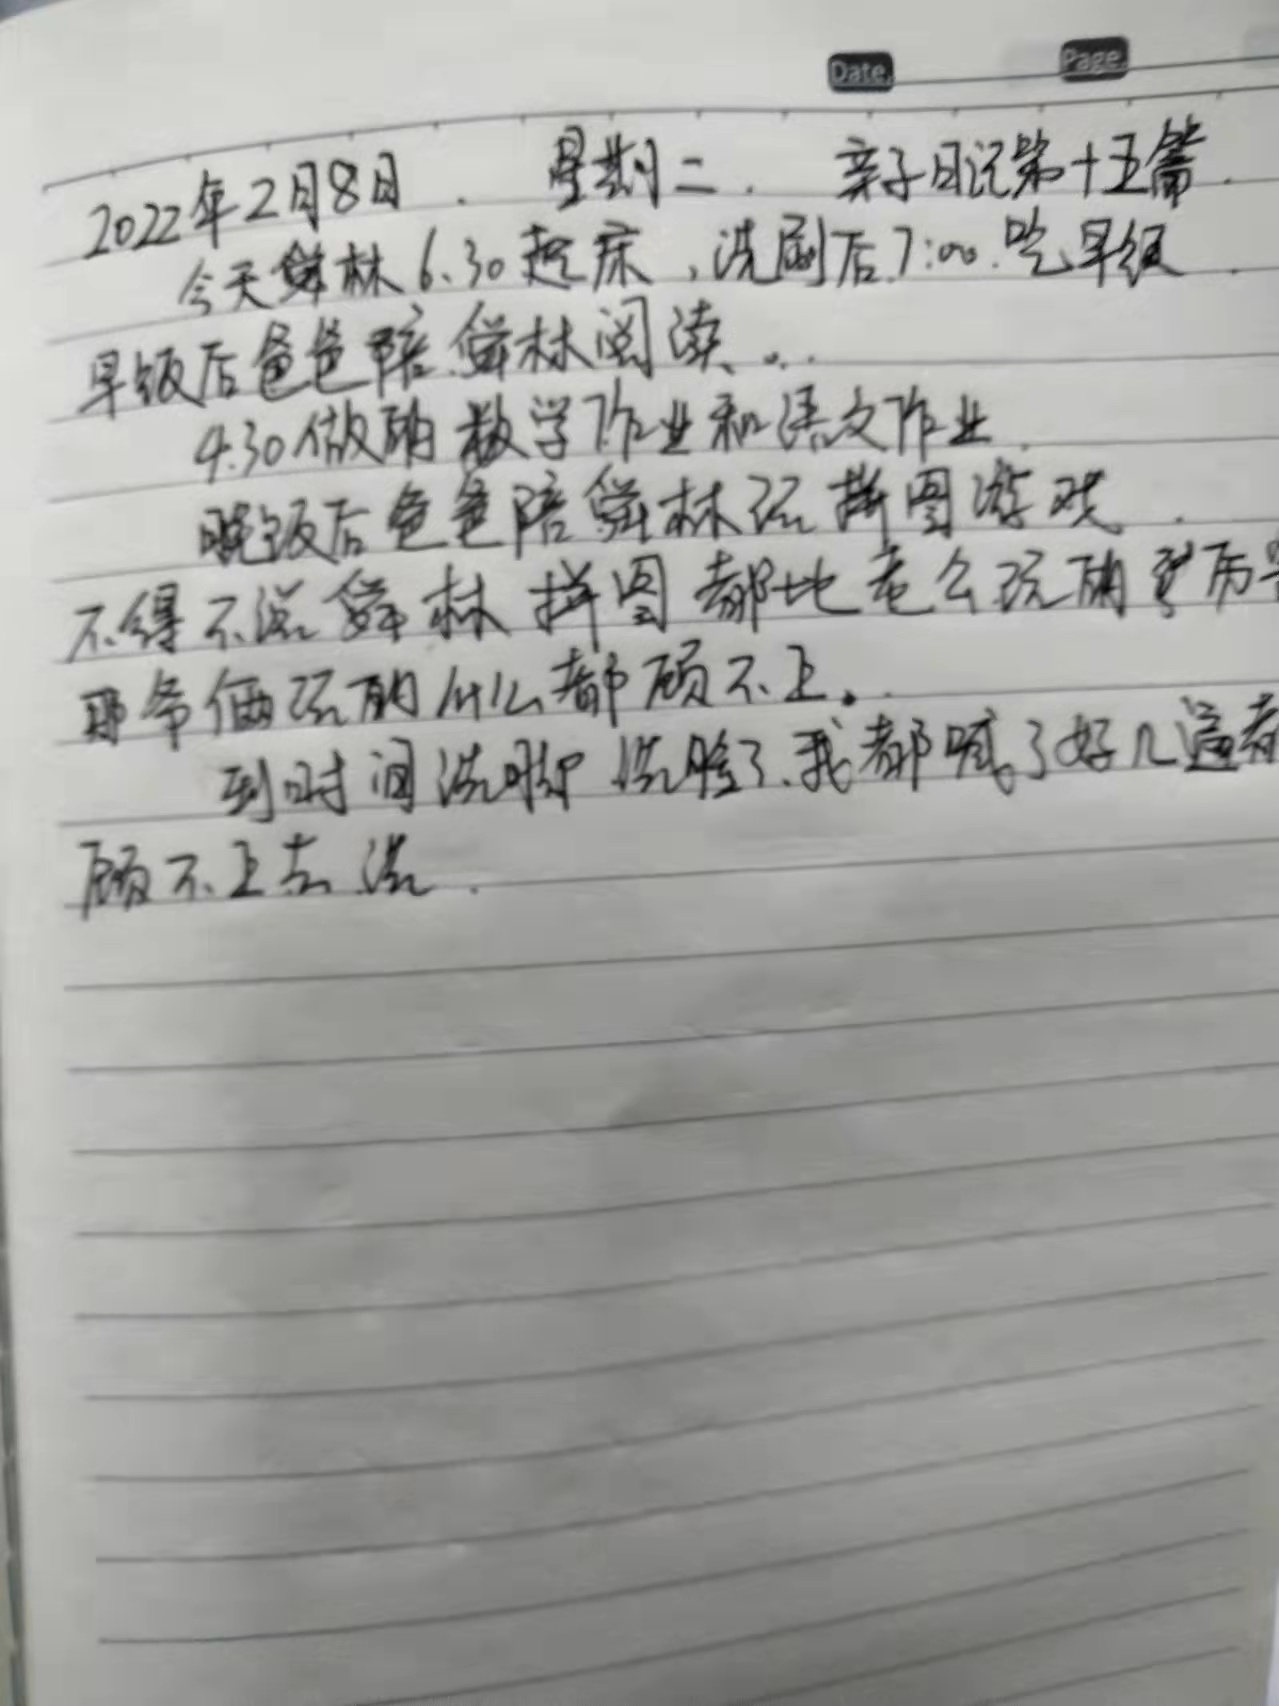 Date. Page.
2022年2月8日. 星期二. 亲子日记第十五篇.
今天舜林6.30起床,洗刷后7:00.吃早饭.
早饭后爸爸陪舜林阅读。..
4.30做的数学作业和语文作业.
晚饭后爸爸陪舜林玩拼图游戏.
不得不说舜林拼图都地老么玩的
爷俩玩的什么都顾不上。.
到时间洗脚洗脸了.我都喊了好几遍都
顾不上去洗.